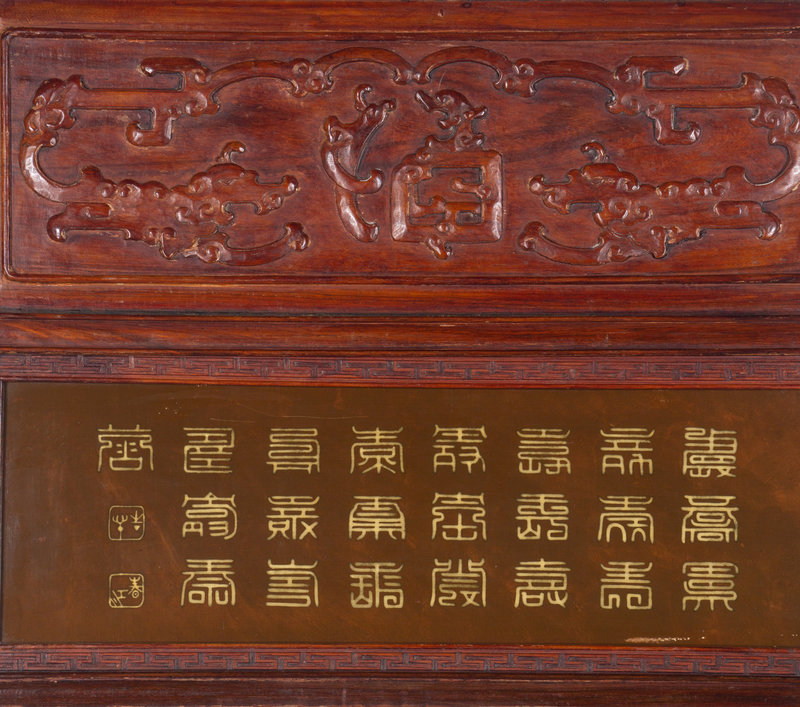 壽壽壽
壽壽壽
壽壽壽
壽壽壽
壽壽壽
壽壽壽
壽壽壽
壽
春江